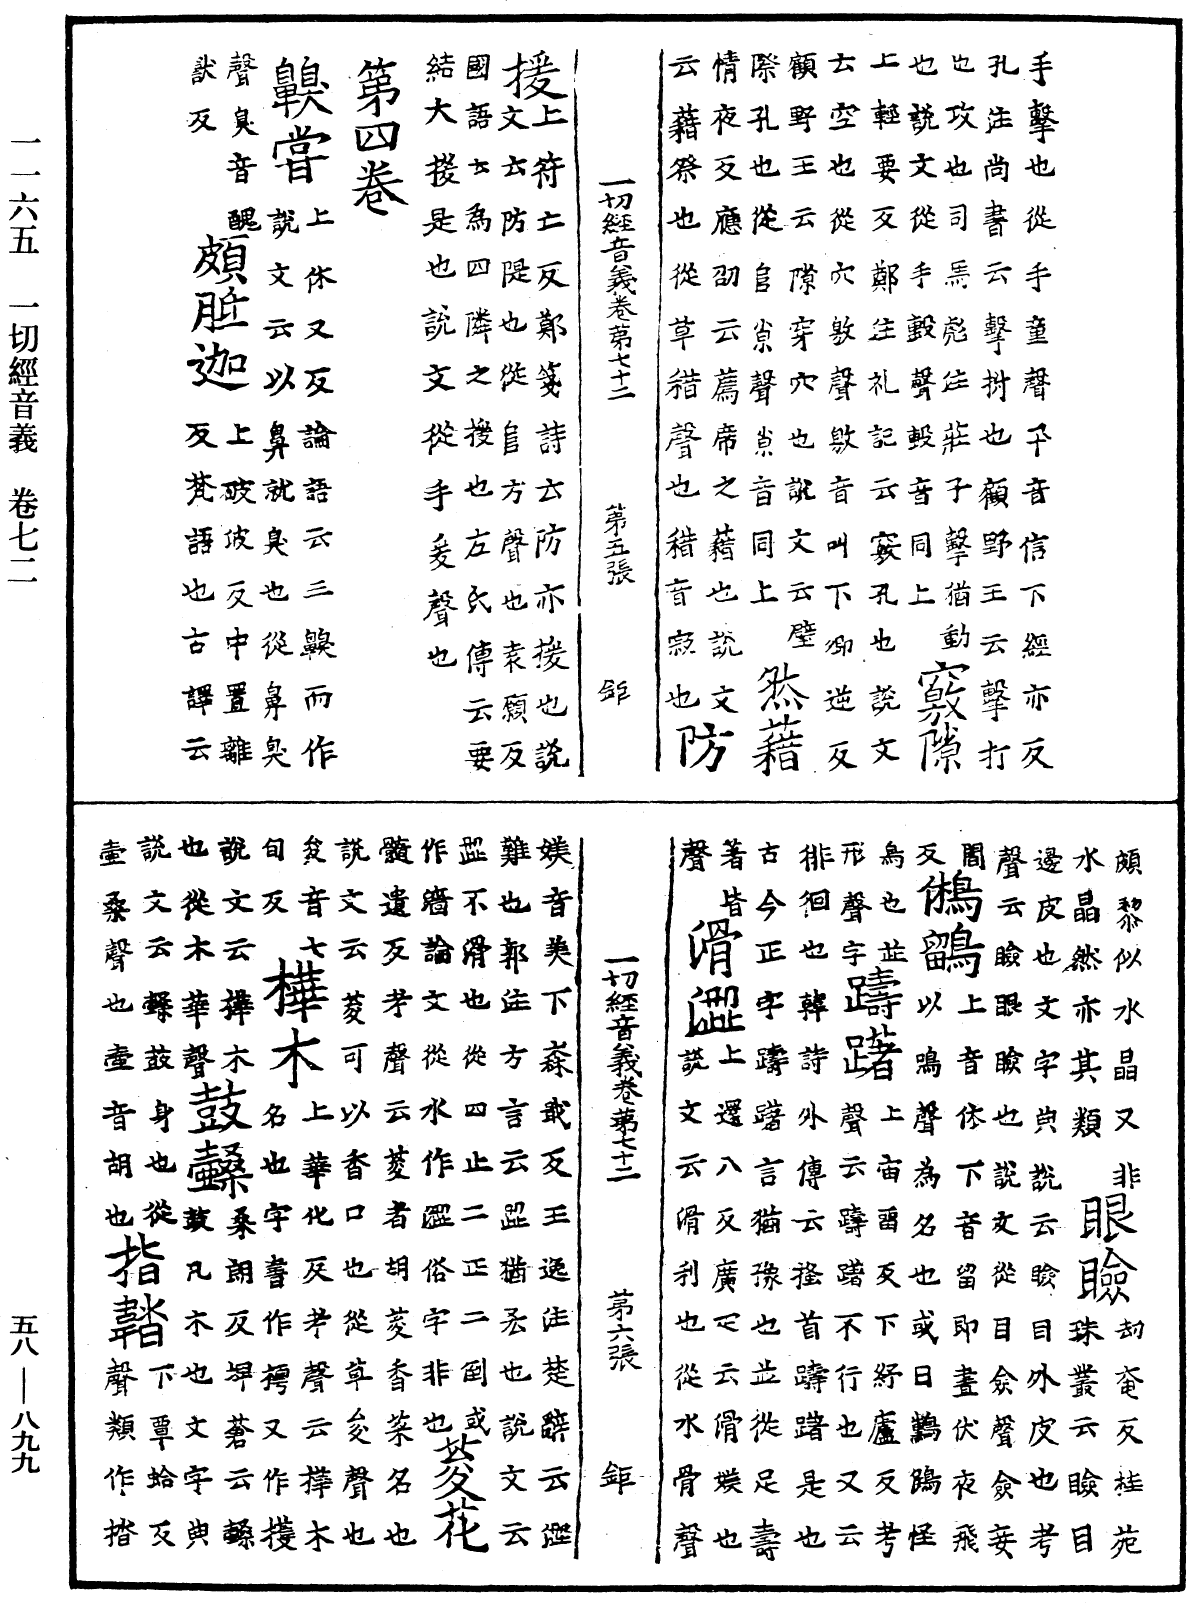 一一六五　一切經音義　卷七二
五八—八九九
手擊也從手童聲平音信下經亦反
孔注尚書云擊拊也顧野王云擊打
也攻也司馬彪注莊子擊猶動
也說文從手毄聲毄音同上竅隙
上輕要反鄭注礼記云竅孔也說文
云空也從穴敫聲敫音叫下卿逆反
顧野王云隙穿穴也說文云壁
際孔也從𨸏㡀聲㡀音同上然藉
情夜反應劭云薦席之藉也說文
云藉祭也從草耤聲也耤音寂也防
一切經音義卷第七十二　第五張　鉅
援上符亡反鄭箋詩云防亦援也說
文云防隄也從𨸏方聲也袁願反
國語云為四隣之援也左氏傳云要
結大援是也說文從手爰聲也
第四卷
齅嘗上休又反論語云三齅而作
說文云以鼻就臭也從鼻臭
聲臭音醜頗胝迦上破波反中置離
狀反反梵語也古譯云
頗黎似水晶又非眼瞼劫奄反桂苑
水晶然亦其類珠叢云瞼目
邊皮也文字典說云瞼目外皮也考
聲云瞼眼瞼也說文從目僉聲僉妾
閻反鵂鶹上音休下音留即晝伏夜飛
鳥也並以鳴聲為名也或曰鵂鶹怪
形聲字躊躇上宙留反下紓廬反考
聲云躊躇不行也又云
徘徊也韓詩外傳云搔首躊躇是也
古今正字躊躇言猶豫也並從足壽
著皆滑澀上還八反廣疋云滑媄也
聲說文云滑利也從水骨聲
一切經音義卷第七十二　第六張　鉅
媄音美下森戢反王逸注楚辭云澀
難也郭注方言云澀猶吝也說文云
澀不滑也從四止二正二倒或
作濇論文從水作澀俗字非也荾花
髓遺反考聲云荾者胡荾香菜名也
說文云荾可以香口也從草夋聲也
夋音七
旬反樺木上華化反考聲云樺木
名也字書作樗又作檴
說文云樺木
也從木華聲鼓䫦桑朗反埤蒼云䫦
鼓凡木也文字典
說文云䫦鼓身也從
壴桑聲也壴音胡也揩鞜下覃蛤反
聲類作揩